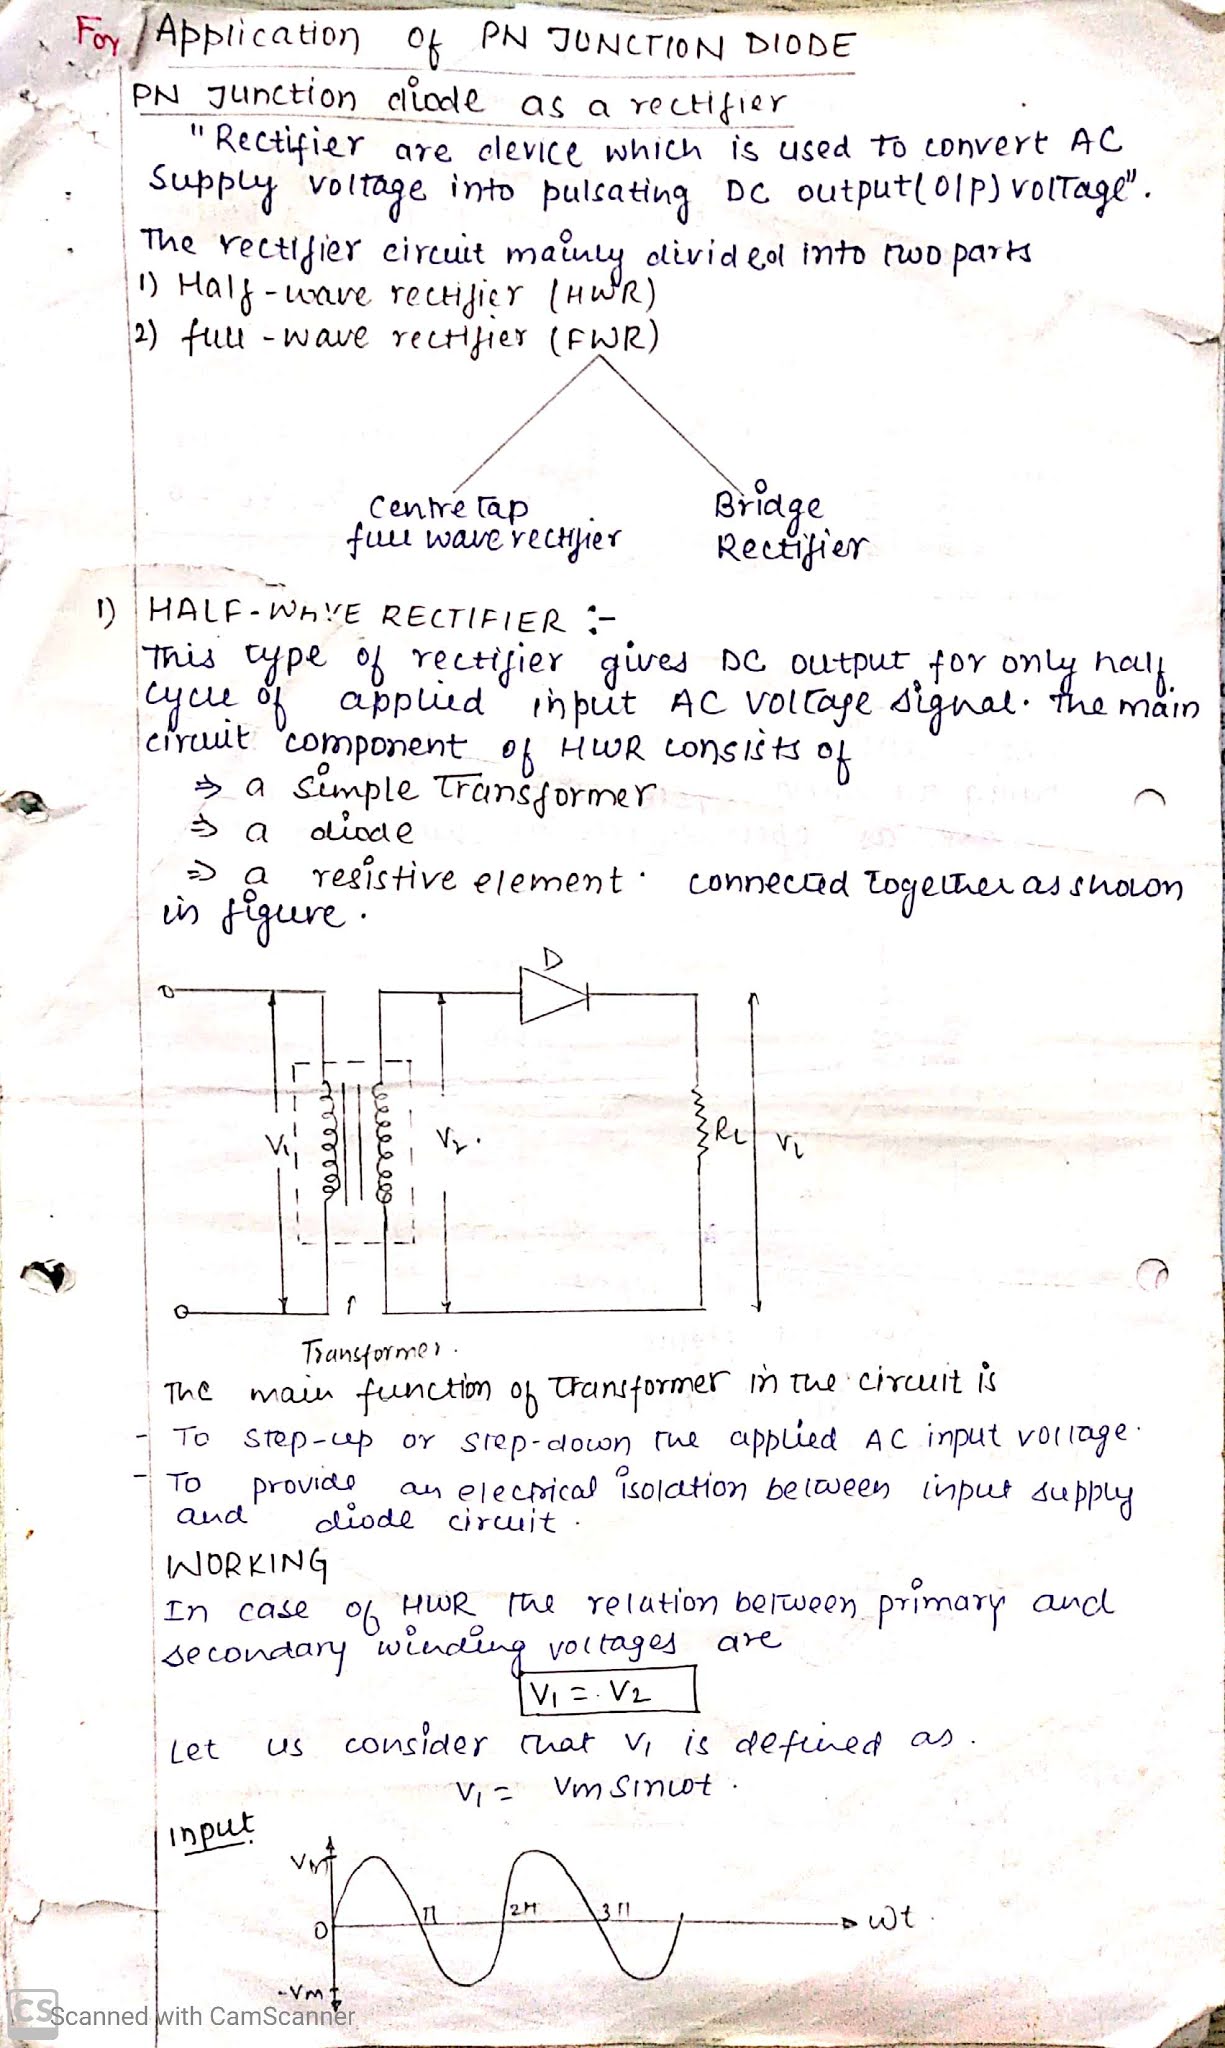 For Application of PN JUNCTION DIODE
PN Junction diode as a rectifier
"Rectifier are device which is used to convert AC
Supply voltage into pulsating DC output(O/P) voltage".
The rectifier circuit mainly divided into two parts
1) Half-wave rectifier (HWR)
2) full-wave rectifier (FWR)
Centre Tap
full wave rectifier
Bridge
Rectifier
1) HALF-WAVE RECTIFIER :-
This type of rectifier gives DC output for only half
cycle of applied input AC voltage signal. the main
circuit component of HWR consists of
⇒ a simple Transformer
⇒ a diode
⇒ a resistive element. connected together as shown
in figure.
D
V1
V2.
RL
VL
Transformer.
The main function of Transformer in the circuit is
- To step-up or step-down the applied AC input voltage.
- To provide an electrical isolation between input supply
and diode circuit.
WORKING
In case of HWR the relation between primary and
secondary winding voltages are
V1 = V2
Let us consider that V1 is defined as.
V1 = Vm Sinωt.
Input
Vm
0
π
2π
3π
ωt
-Vm
CS Scanned with CamScanner